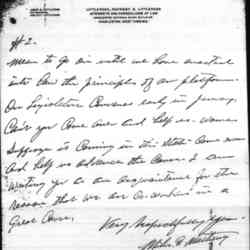 LITTLEPAGE, MATHENY & LITTLEPAGE
ATTORNEYS AND COUNSELLORS AT LAW
CHARLESTON, WEST VIRGINIA
#2.
mean to go on until we have enacted
into law the principles of our platform.
Our Legislature convenes early in January,
Can't you come over and help us - woman
Suffrage is coming in this State - come over
and help us advance the cause. I am
writing you to an acquaintance for the
reason that we are co-workers in a
Great Cause.
Very respectfully yours